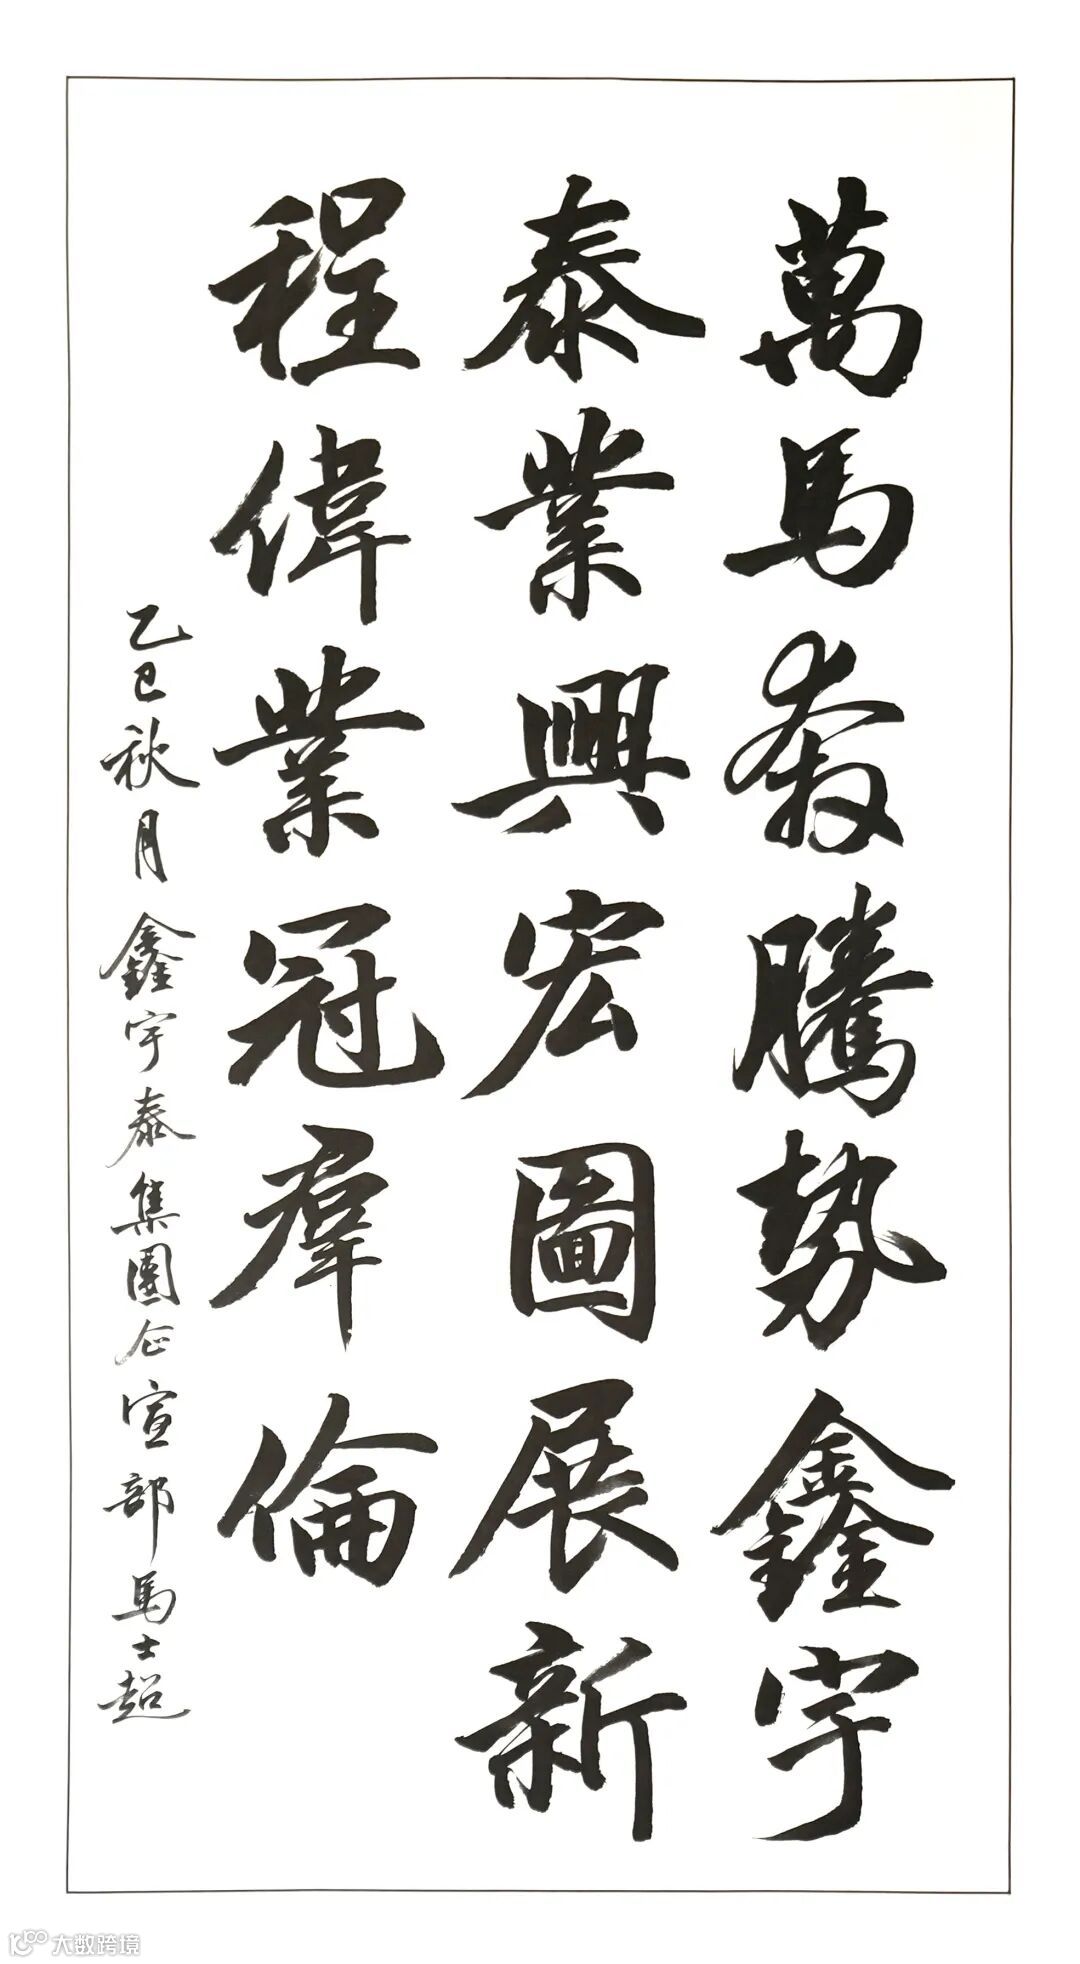 萬馬奔騰勢鑫宇
泰業興宏圖展新
程偉業冠羣倫
乙巳秋月鑫宇泰集團企宣部馬士超
大数跨境